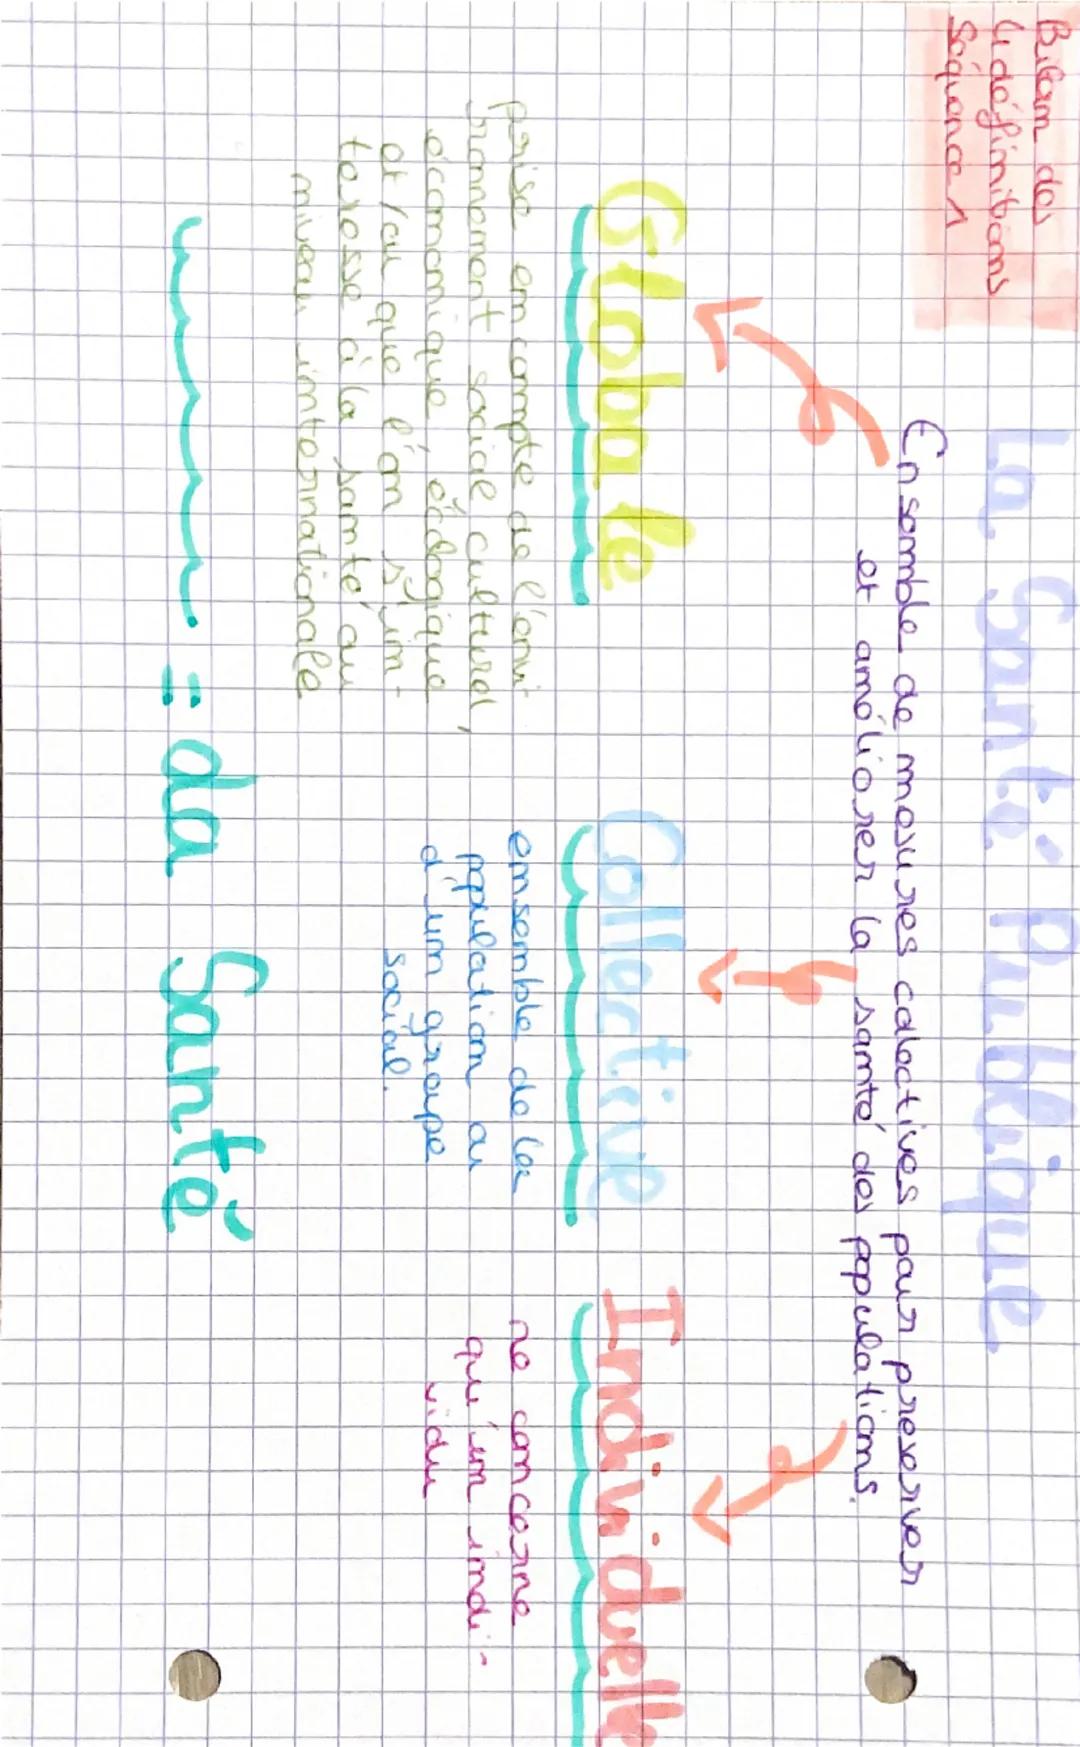 Bilan des
4 définitions
Séquence 1
La Santé Publique
Ensemble de mesures colectives pour preserver
et améliorer la santé des populations.
Globale
prise en compte de l'envi-
ronnement social culturel,
économique écologique
et/ou que l'on s'in-
teresse à la santé au
niveau internationale
Collective
ensemble de la
population ou
d'un groupe
social.
Individuelle
ne concerne
qu'un indi-
vidu
= de Santé